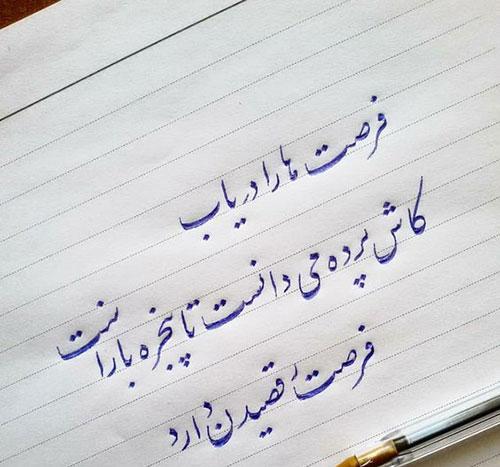 فرصت ها را دریاب
کاش پرده می دانست تا پنجره باز است
فرصت رقصیدن دارد